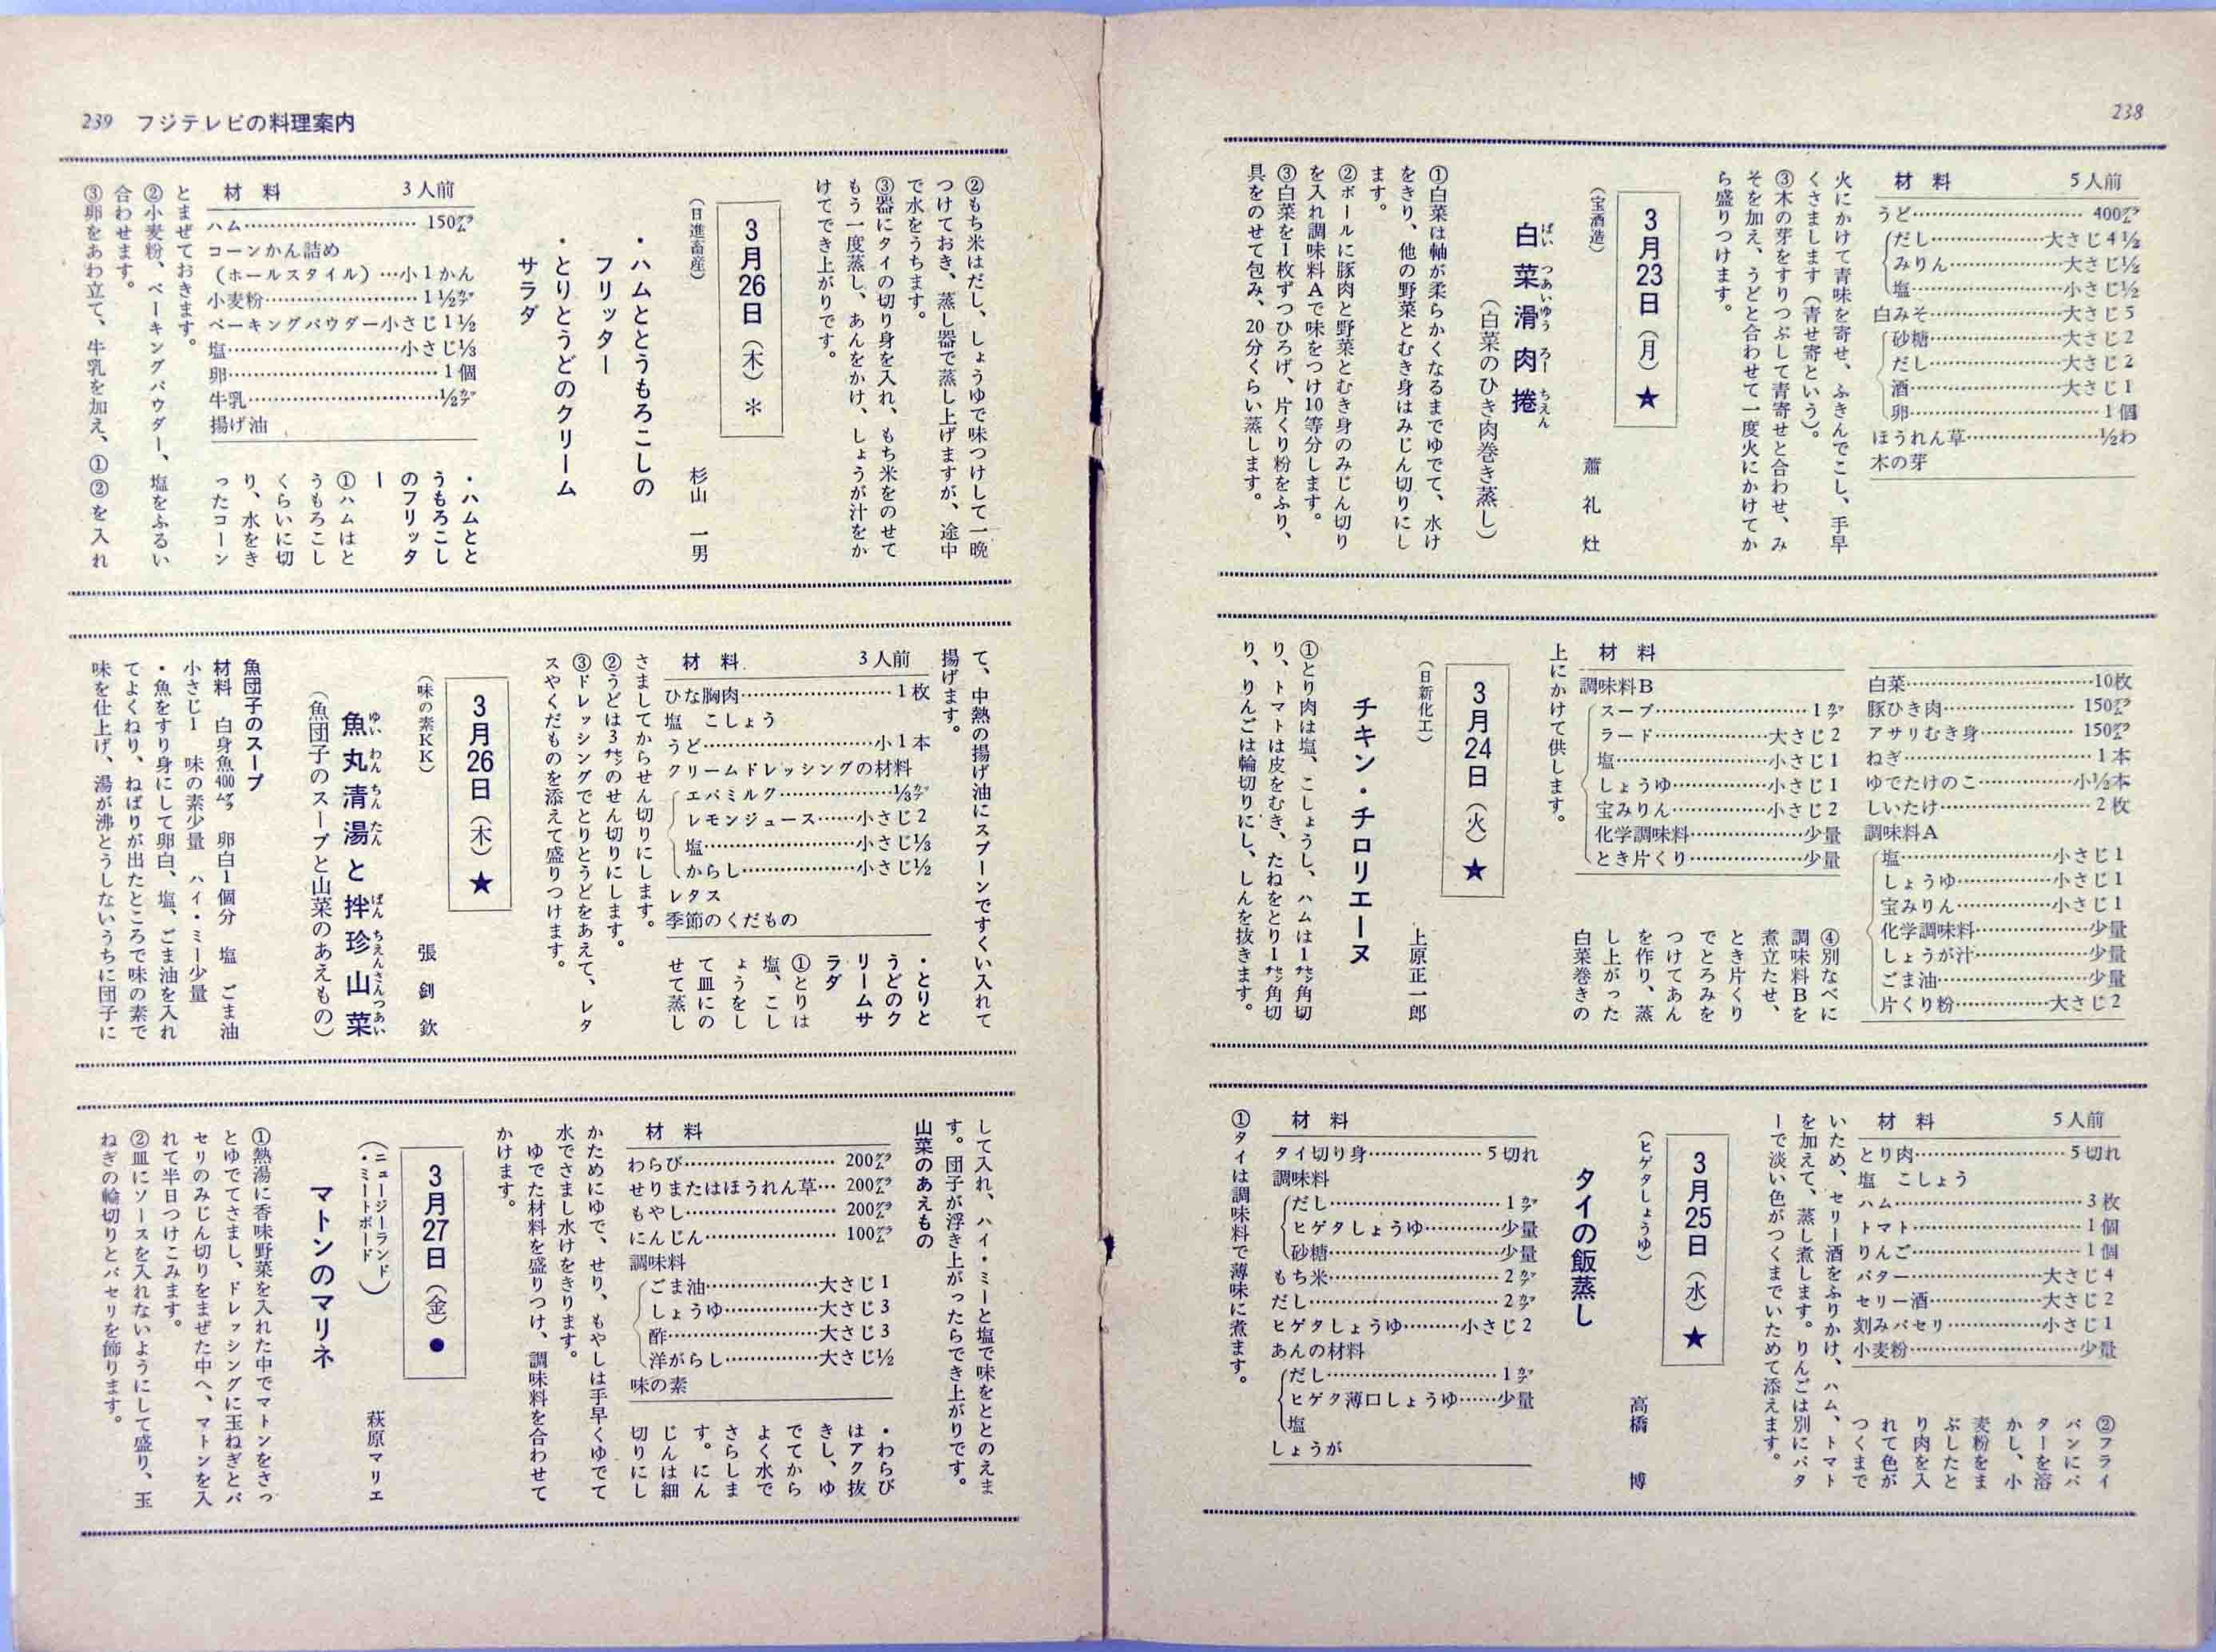 238
材料　5人前
うど……400㌘
だし……大さじ4½
みりん……大さじ½
塩……小さじ½
白みそ……大さじ5
砂糖……大さじ2
だし……大さじ2
酒……大さじ1
卵……1個
ほうれん草……½わ
木の芽
火にかけて青味を寄せ、ふきんでこし、手早
くさまします（青せ寄という）。
③木の芽をすりつぶして青寄せと合わせ、み
そを加え、うどと合わせて一度火にかけてか
ら盛りつけます。
3月23日（月）★
（宝酒造）　蕭礼灶
白菜滑肉捲
ばい つあいゆう ろー ちえん
（白菜のひき肉巻き蒸し）
①白菜は軸が柔らかくなるまでゆでて、水け
をきり、他の野菜とむき身はみじん切りにし
ます。
②ボールに豚肉と野菜とむき身のみじん切り
を入れ調味料Aで味をつけ10等分します。
③白菜を1枚ずつひろげ、片くり粉をふり、
具をのせて包み、20分くらい蒸します。
白菜……10枚
豚ひき肉……150㌘
アサリむき身……150㌘
ねぎ……1本
ゆでたけのこ……小½本
しいたけ……2枚
調味料A
塩……小さじ1
しょうゆ……小さじ1
宝みりん……小さじ1
化学調味料……少量
しょうが汁……少量
ごま油……少量
片くり粉……大さじ2
④別なべに
調味料Bを
煮立たせ、
とき片くり
でとろみを
つけてあん
を作り、蒸
し上がった
白菜巻きの
材料
調味料B
スープ……1㌍
ラード……大さじ2
塩……小さじ1
しょうゆ……小さじ1
宝みりん……小さじ2
化学調味料……少量
とき片くり……少量
上にかけて供します。
3月24日（火）★
（日新化工）　上原正一郎
チキン・チロリエーヌ
①とり肉は塩、こしょうし、ハムは1㌢角切
り、トマトは皮をむき、たねをとり1㌢角切
り、りんごは輪切りにし、しんを抜きます。
材料　5人前
とり肉……5切れ
塩　こしょう
ハム……3枚
トマト……1個
りんご……1個
バター……大さじ4
セリー酒……大さじ2
刻みパセリ……小さじ1
小麦粉……少量
②フライ
パンにバ
ターを溶
かし、小
麦粉をま
ぶしたと
り肉を入
れて色が
つくまで
いため、セリー酒をふりかけ、ハム、トマト
を加えて、蒸し煮します。りんごは別にバタ
ーで淡い色がつくまでいためて添えます。
3月25日（水）★
（ヒゲタしょうゆ）　高橋　博
タイの飯蒸し
材料
タイ切り身……5切れ
調味料
だし……1㌍
ヒゲタしょうゆ……少量
砂糖……少量
もち米……2㌍
だし……2㌍
ヒゲタしょうゆ……小さじ2
あんの材料
だし……1㌍
ヒゲタ薄口しょうゆ……少量
塩
しょうが
①タイは調味料で薄味に煮ます。
239　フジテレビの料理案内
②もち米はだし、しょうゆで味つけして一晩
つけておき、蒸し器で蒸し上げますが、途中
で水をうちます。
③器にタイの切り身を入れ、もち米をのせて
もう一度蒸し、あんをかけ、しょうが汁をか
けてでき上がりです。
3月26日（木）＊
（日進畜産）　杉山　一男
・ハムととうもろこしの
フリッター
・とりとうどのクリーム
サラダ
・ハムとと
うもろこし
のフリッタ
ー
①ハムはと
うもろこし
くらいに切
り、水をき
ったコーン
材料　3人前
ハム……150㌘
コーンかん詰め
（ホールスタイル）…小1かん
小麦粉……1½㌍
ベーキングパウダー小さじ1½
塩……小さじ⅓
卵……1個
牛乳……½㌍
揚げ油
とまぜておきます。
②小麦粉、ベーキングパウダー、塩をふるい
合わせます。
③卵をあわ立て、牛乳を加え、①②を入れ
て、中熱の揚げ油にスプーンですくい入れて
揚げます。
・とりと
うどのク
リームサ
ラダ
①とりは
塩、こし
ょうをし
て皿にの
せて蒸し
材料　3人前
ひな胸肉……1枚
塩　こしょう
うど……小1本
クリームドレッシングの材料
エバミルク……⅓㌍
レモンジュース……小さじ2
塩……小さじ⅓
からし……小さじ½
レタス
季節のくだもの
さましてからせん切りにします。
②うどは3㌢のせん切りにします。
③ドレッシングでとりとうどをあえて、レタ
スやくだものを添えて盛りつけます。
3月26日（木）★
（味の素KK）　張釗欽
魚丸清湯と拌珍山菜
ゆい わんちんたん　ばん ちえんさんつあい
（魚団子のスープと山菜のあえもの）
魚団子のスープ
材料　白身魚400㌘　卵白1個分　塩　ごま油
小さじ1　味の素少量　ハイ・ミー少量
・魚をすり身にして卵白、塩、ごま油を入れ
てよくねり、ねばりが出たところで味の素で
味を仕上げ、湯が沸とうしないうちに団子に
して入れ、ハイ・ミーと塩で味をととのえま
す。団子が浮き上がったらでき上がりです。
山菜のあえもの
・わらび
はアク抜
きし、ゆ
でてから
よく水で
さらしま
す。にん
じんは細
切りにし
材料
わらび……200㌘
せりまたはほうれん草…200㌘
もやし……200㌘
にんじん……100㌘
調味料
ごま油……大さじ1
しょうゆ……大さじ3
酢……大さじ3
洋がらし……大さじ½
味の素
かためにゆで、せり、もやしは手早くゆでて
水でさまし水けをきります。
ゆでた材料を盛りつけ、調味料を合わせて
かけます。
3月27日（金）●
（ニュージーランド・ミートボード）　萩原マリエ
マトンのマリネ
①熱湯に香味野菜を入れた中でマトンをさっ
とゆでてさまし、ドレッシングに玉ねぎとパ
セリのみじん切りをまぜた中へ、マトンを入
れて半日つけこみます。
②皿にソースを入れないようにして盛り、玉
ねぎの輪切りとパセリを飾ります。